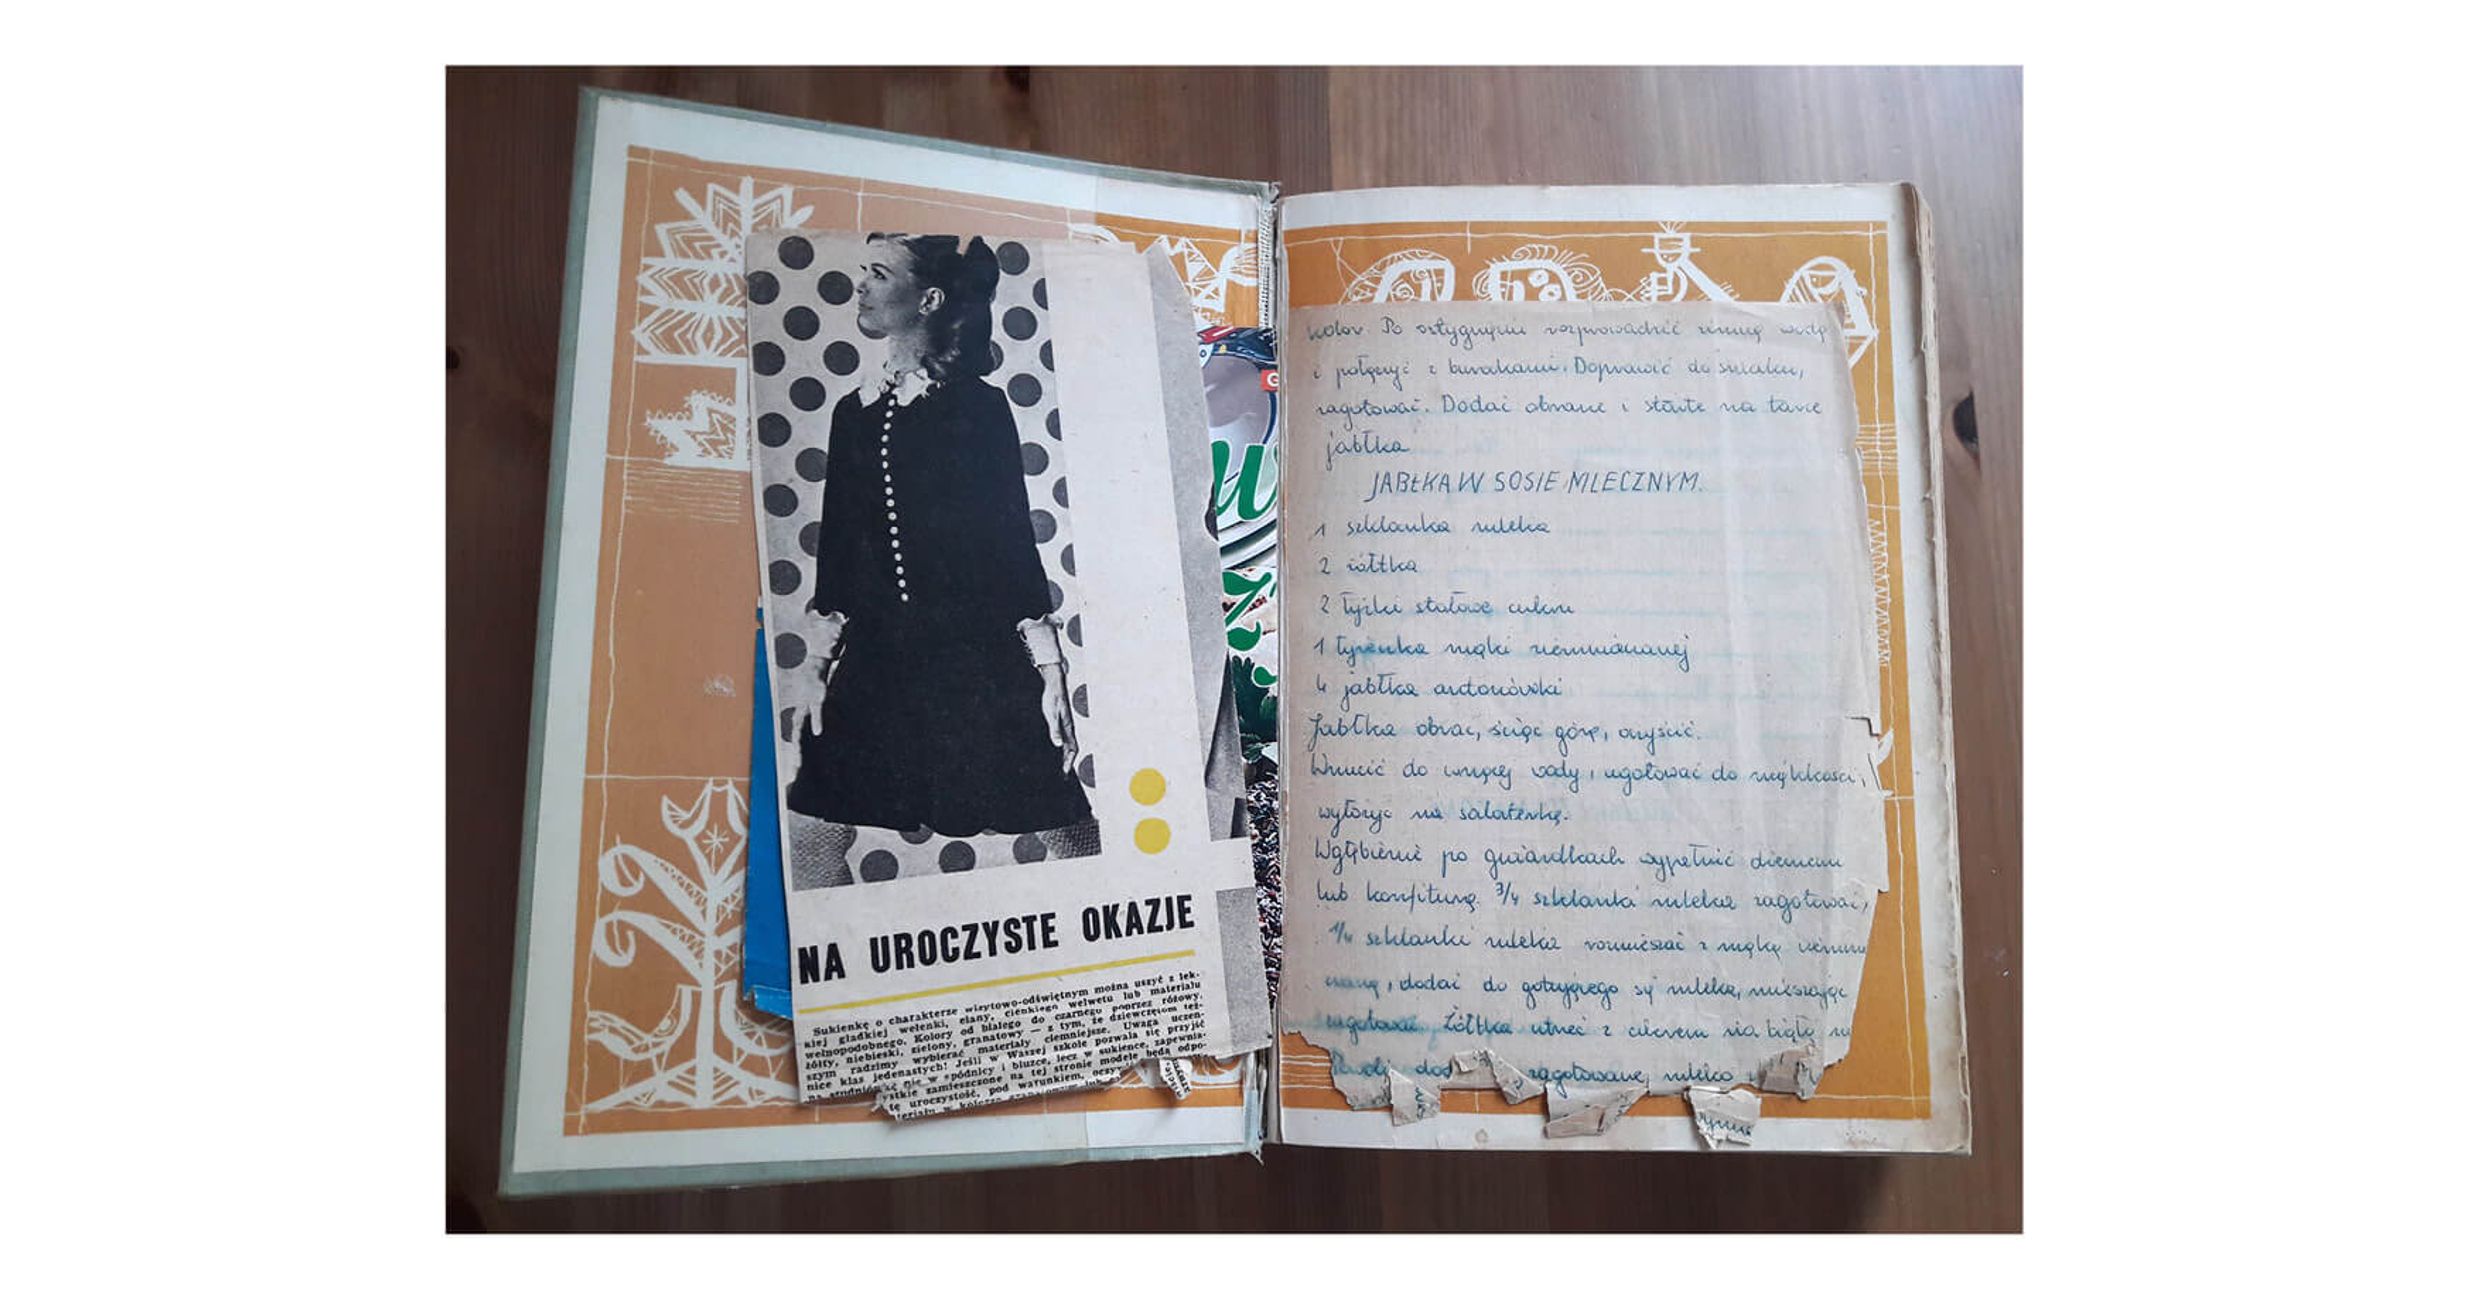 NA UROCZYSTE OKAZJE
Sukienkę o charakterze wizytowo-odświętnym można uszyć z lek-
kiej gładkiej wełenki, elany, cienkiego welwetu lub materiału
wełnopodobnego. Kolory od białego do czarnego poprzez różowy,
żółty, niebieski, zielony, granatowy — z tym, że dziewczętom też-
szym radzimy wybierać materiały ciemniejsze. Uwaga uczen-
nice klas jedenastych! Jeśli w Waszej szkole pozwala się przyjść
na studniówkę nie w spódnicy i bluzce, lecz w sukience, zapewnia-
ystkie zamieszczone na tej stronie modele będą odpo-
tę uroczystość, pod warunkiem, oczyw
teriału w kolorze granatowym lub
kolor. Po ostygnięciu rozprowadzić zimną wodą
i połączyć z burakami. Doprawić do smaku,
zagotować. Dodać obrane i starte na tarce
jabłka
JABŁKA W SOSIE MLECZNYM.
1 szklanka mleka
2 żółtka
2 łyżki stołowe cukru
1 łyżeczka mąki ziemniaczanej
4 jabłka antonówki
Jabłka obrać, ściąć górę, oczyścić.
Wrzucić do wrzącej wody, ugotować do miękkości,
wyłożyć na salaterkę.
Wgłębienie po gniazdkach wypełnić dżemem
lub konfiturą. 3/4 szklanki mleka zagotować,
1/4 szklanki mleka rozmieszać z mąką ziemnia
czaną, dodać do gotującego się mleka, mieszając
zagotować. Żółtka utrzeć z cukrem na białą m
Powoli dod zagotowane mleko